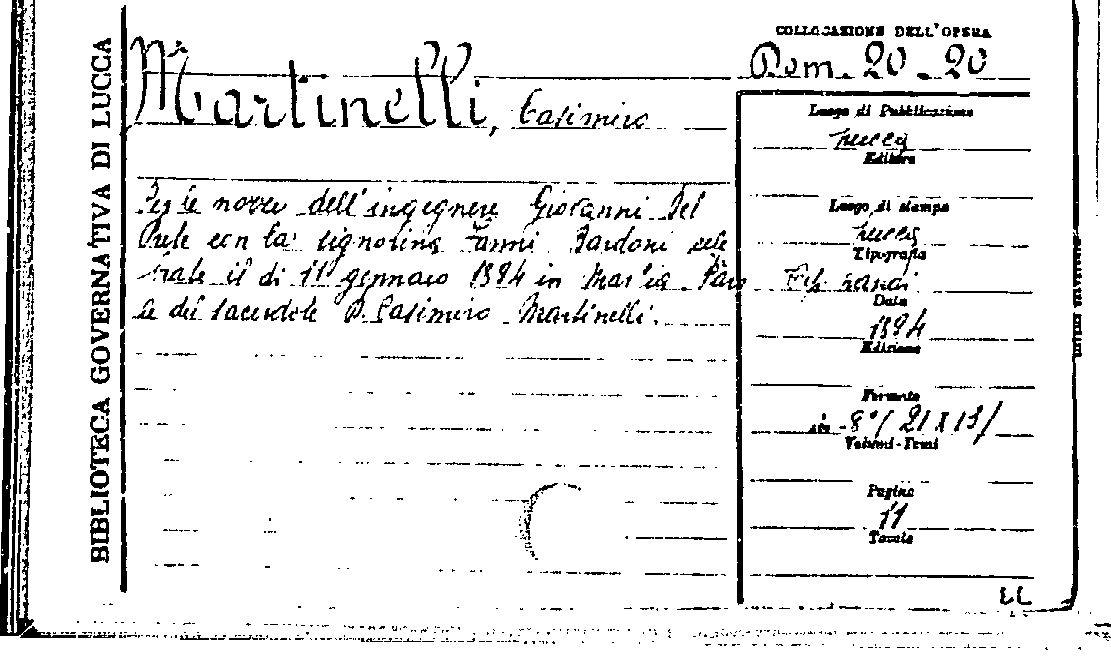 BIBLIOTECA GOVERNATIVA DI LUCCA
COLLOCAZIONE DELL'OPERA
Dom. 20-20
Martinelli, Casimiro
Per le nozze dell'ingegnere Giovanni Del
Prete con la signorina Fanni Bardoni cele
brate il dì 11 gennaio 1894 in Marlia. Paro
le del sacerdote D. Casimiro Martinelli.
Luogo di Pubblicazione
Lucca
Editore
Luogo di stampa
Lucca
Tipografia
Data
1894
Edizione
Formato
in-8°/21X13/
Volumi-Tomi
Pagine
11
Tavole